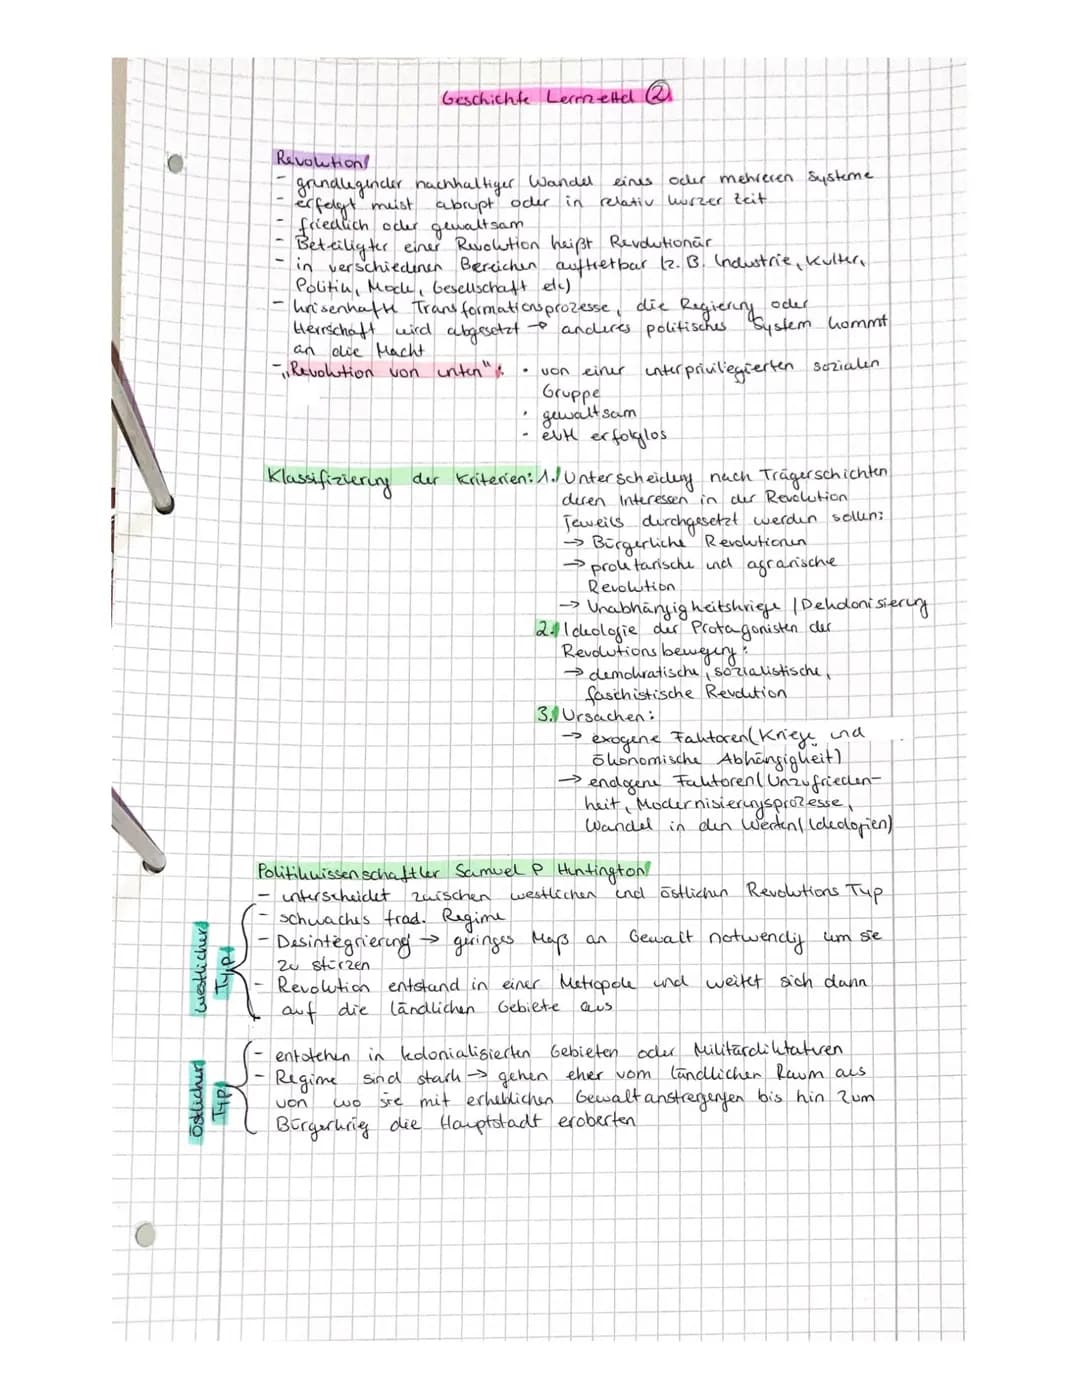 Geschichte Lernzettel ②
Revolution!
- grundlegender nachhaltiger Wandel eines oder mehreren Systeme
- erfolgt meist abrupt oder in relativ kurzer Zeit
- friedlich oder gewaltsam
- Beteiligter einer Revolution heißt Revolutionär
- in verschiedenen Bereichen auftretbar (z.B. Industrie, Kultur,
Politik, Mode, Gesellschaft etc)
- krisenhafte Transformationsprozesse, die Regierung oder
Herrschaft wird abgesetzt → anderes politisches System kommt
an die Macht
- „Revolution von unten": • von einer unterprivilegierten sozialen
Gruppe
• gewaltsam
• evtl erfolglos
Klassifizierung der Kriterien: 1.! Unterscheidung nach Trägerschichten
deren Interessen in der Revolution
jeweils durchgesetzt werden sollen:
→ Bürgerliche Revolutionen
→ proletarische und agrarische
Revolution
→ Unabhängigkeitskriege / Dekolonisierung
2.! Ideologie der Protagonisten der
Revolutionsbewegung:
→ demokratische, sozialistische,
faschistische Revolution
3.! Ursachen:
→ exogene Faktoren (Kriege und
ökonomische Abhängigkeit)
→ endogene Faktoren (Unzufrieden-
heit, Modernisierungsprozesse,
Wandel in den Werten (Ideologien)
Politikwissenschaftler Samuel P Huntington!
- unterscheidet zwischen westlichen und östlichen Revolutions Typ
westlicher Typ!
- schwaches trad. Regime
- Desintegrierung → geringes Maß an Gewalt notwendig um sie
zu stürzen
- Revolution entstand in einer Metropole und weitet sich dann
auf die ländlichen Gebiete aus
östlicher Typ!
- entstehen in kolonialisierten Gebieten oder Militärdiktaturen
- Regime sind stark → gehen eher vom ländlichen Raum aus
von wo sie mit erheblichen Gewaltanstregengen bis hin zum
Bürgerkrieg die Hauptstadt eroberten